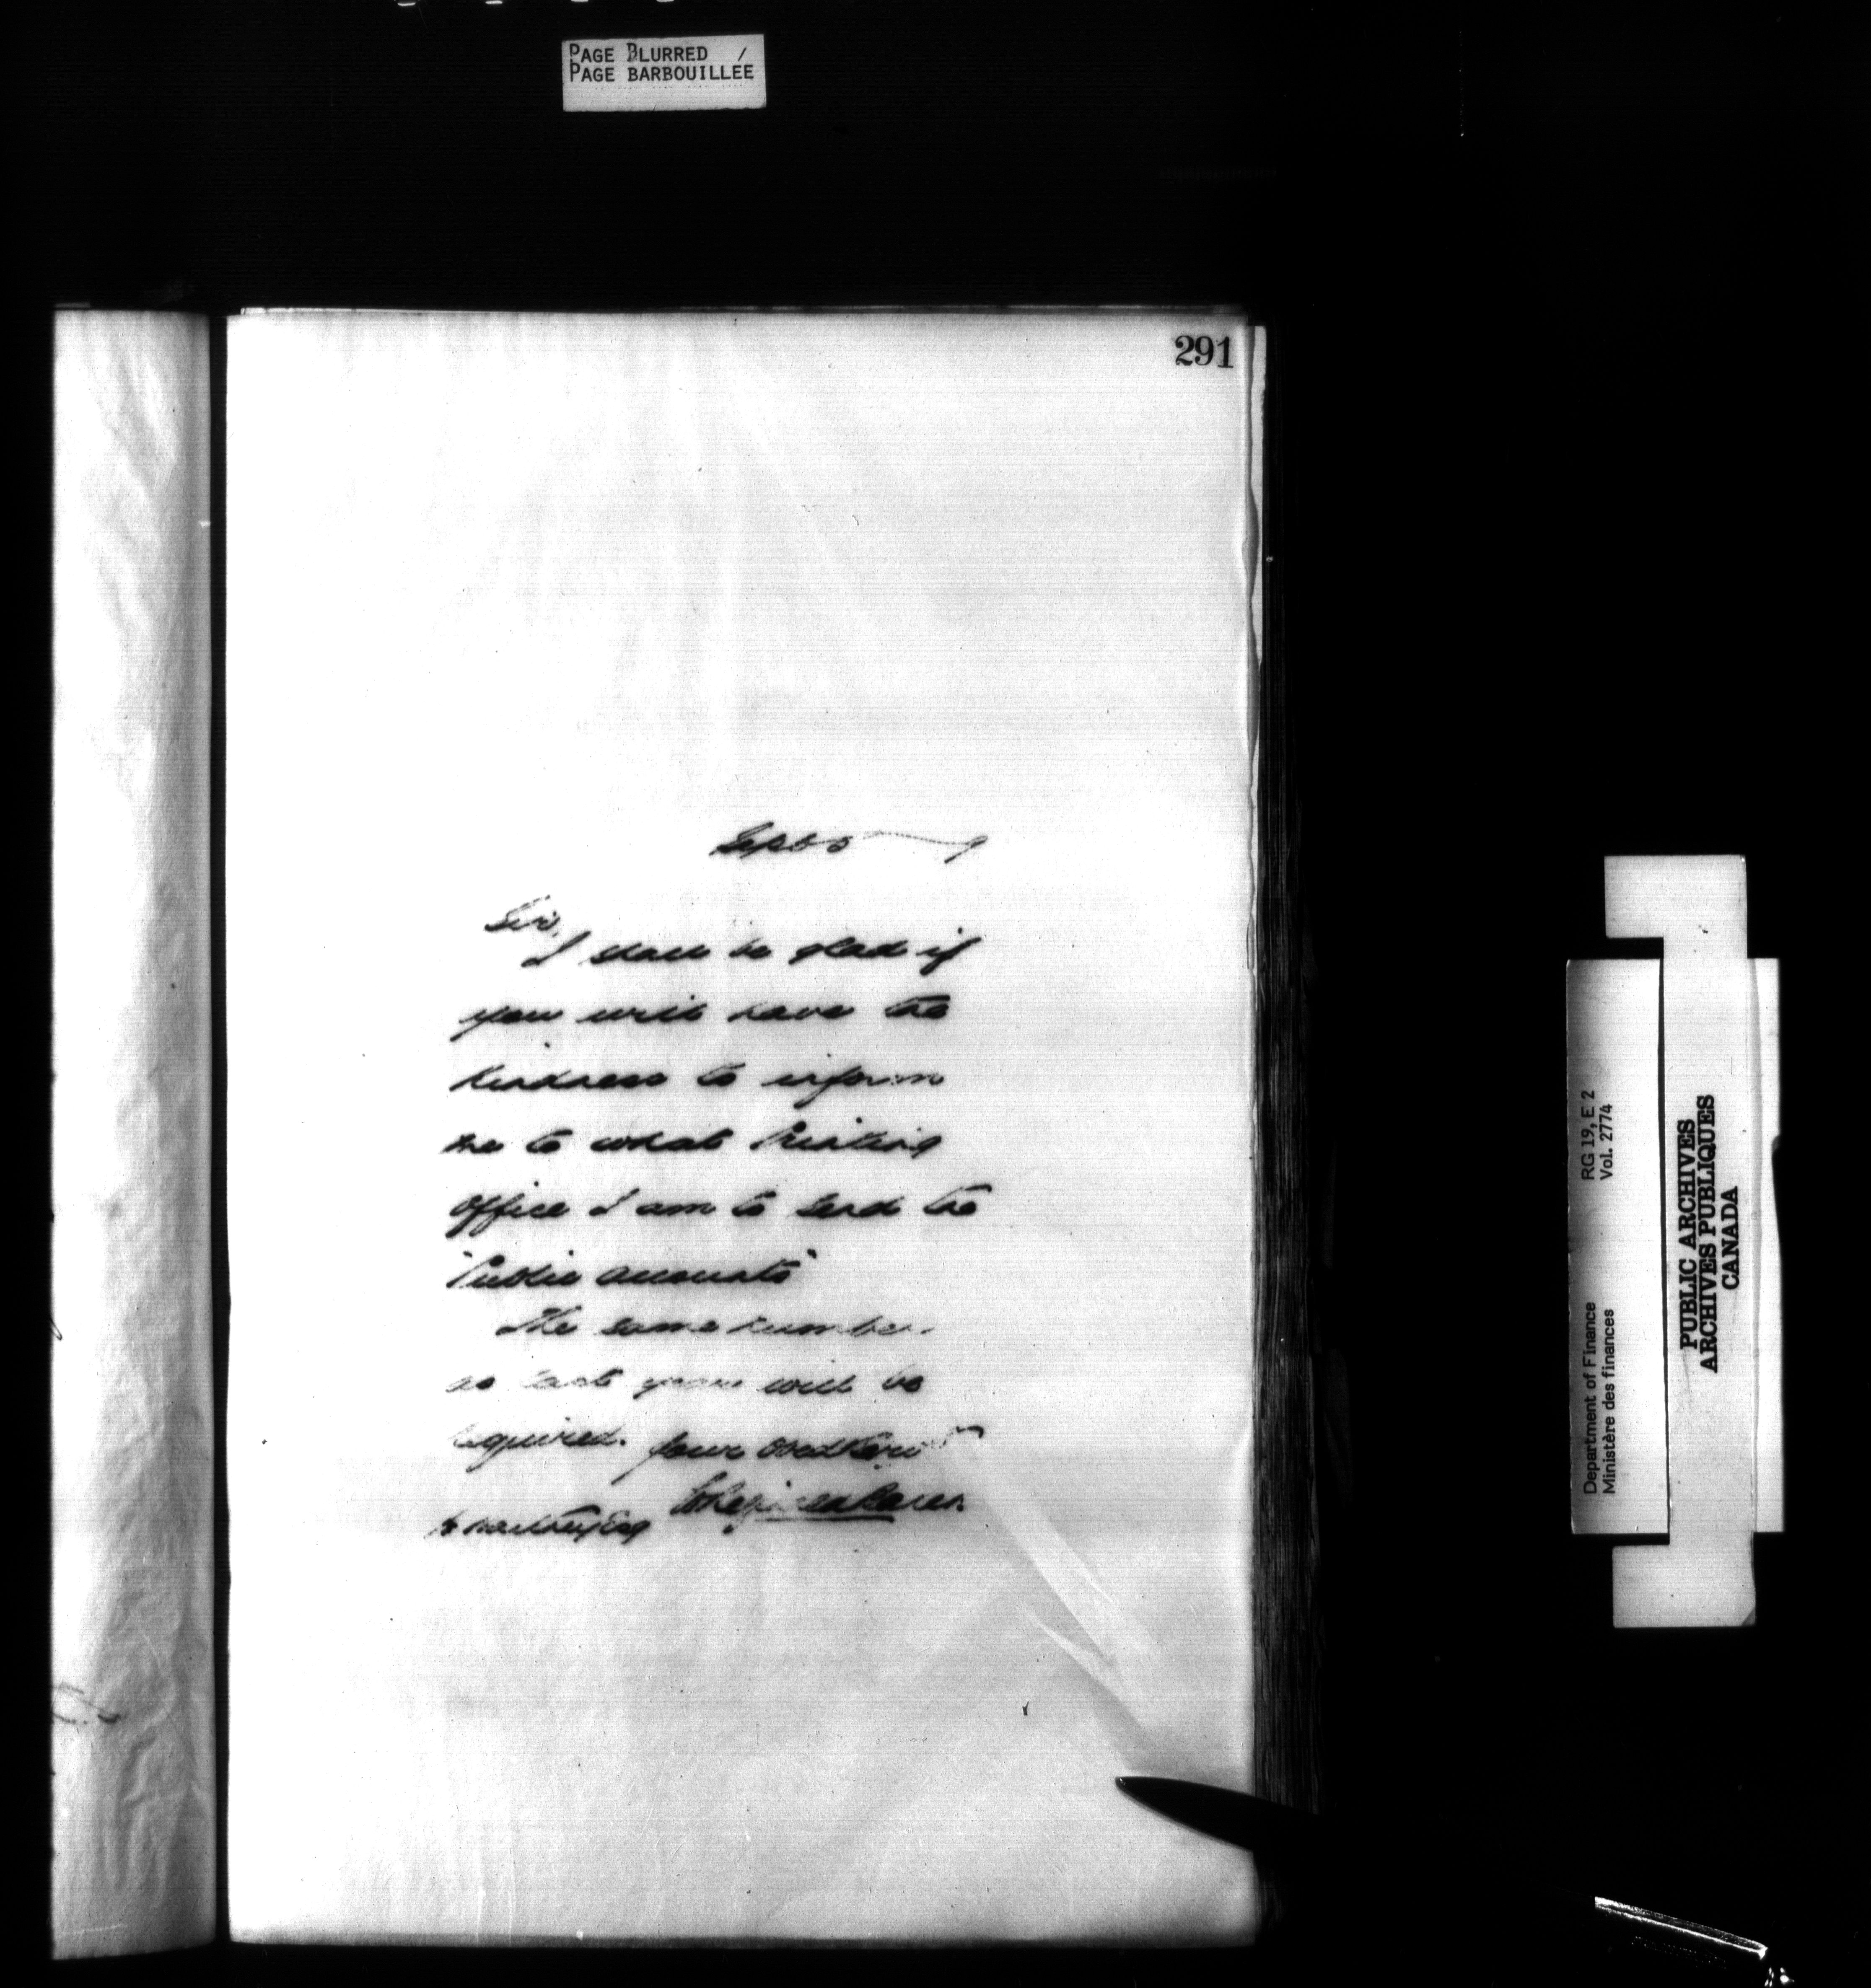 PAGE BLURRED /
PAGE BARBOUILLEE
291
Sept 5
Sir,
I shall be glad if
you will have the
kindness to inform
me to what Printing
Office I am to send the
"Public Accounts"
The same number
as last year will be
required. Your obedt Servt
RG 19, E 2
Vol. 2774
Department of Finance
Ministère des finances
PUBLIC ARCHIVES
ARCHIVES PUBLIQUES
CANADA